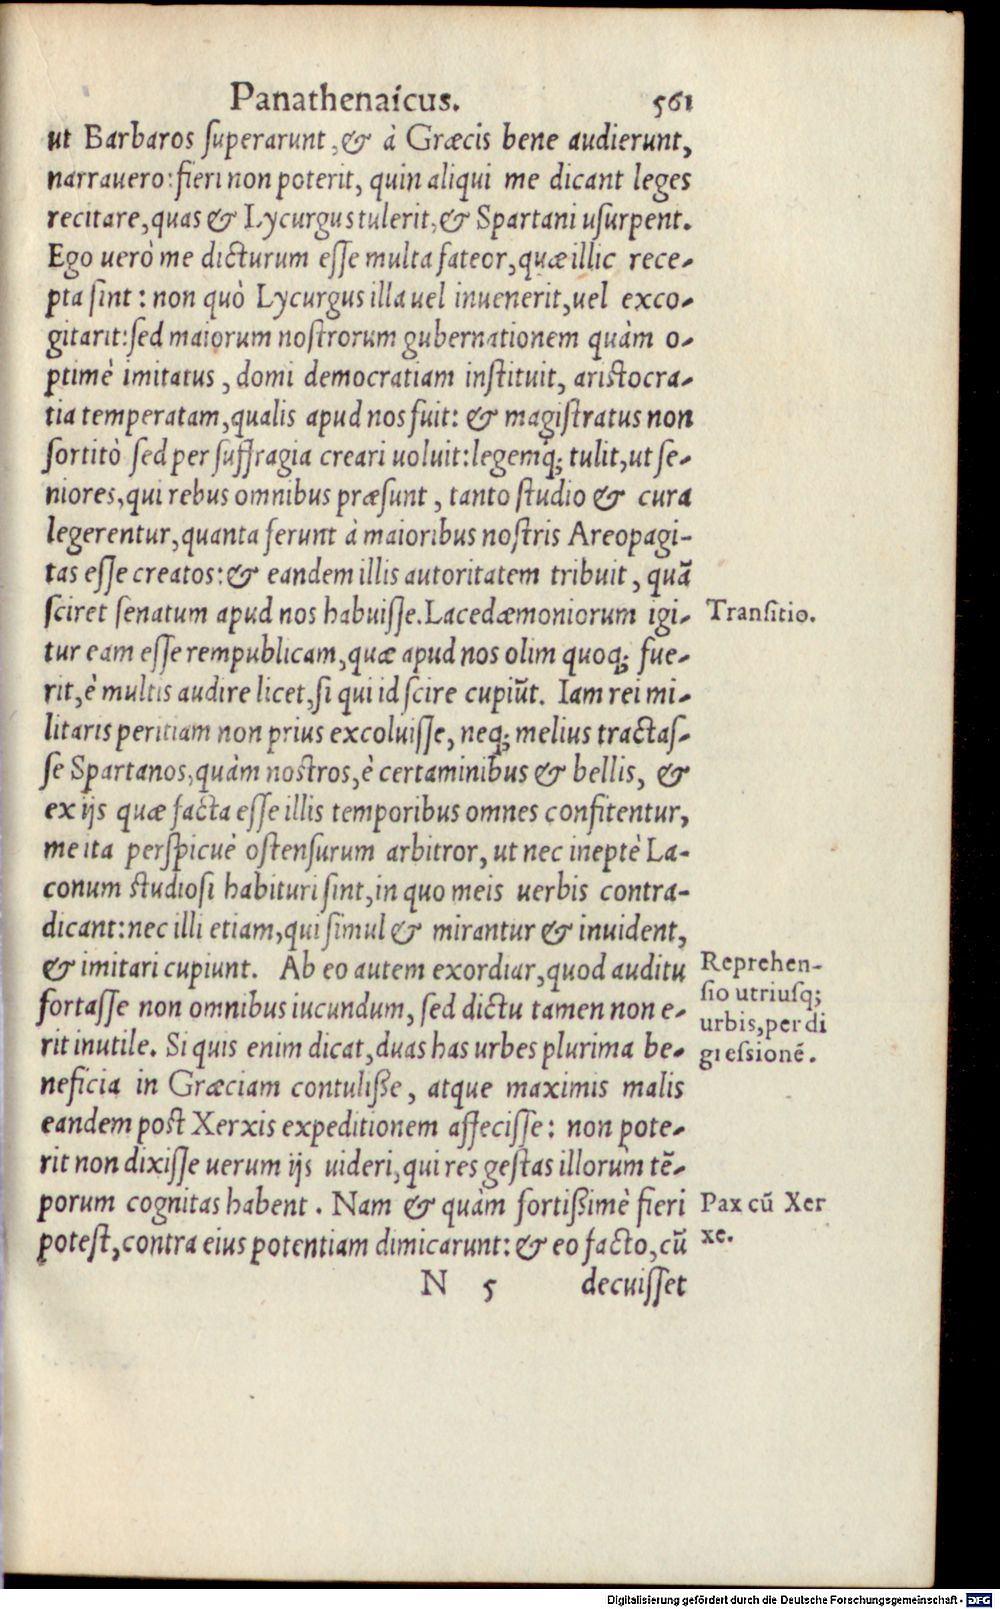 Panathenaicus. 561
ut Barbaros ſuperarunt, & à Græcis bene audierunt,
narrauero: fieri non poterit, quin aliqui me dicant leges
recitare, quas & Lycurgus tulerit, & Spartani uſurpent.
Ego uerò me dicturum eſſe multa fateor, quæ illic rece-
pta ſint: non quò Lycurgus illa uel inuenerit, uel exco-
gitarit: ſed maiorum noſtrorum gubernationem quàm o-
ptimè imitatus, domi democratiam inſtituit, ariſtocra-
tia temperatam, qualis apud nos fuit: & magiſtratus non
ſortitò ſed per ſuffragia creari uoluit: legemq; tulit, ut ſe-
niores, qui rebus omnibus præſunt, tanto ſtudio & cura
legerentur, quanta ferunt à maioribus noſtris Areopagi-
tas eſſe creatos: & eandem illis autoritatem tribuit, quã
ſciret ſenatum apud nos habuiſſe. Lacedæmoniorum igi-
Tranſitio.
tur eam eſſe rempublicam, quæ apud nos olim quoq; fue-
rit, è multis audire licet, ſi qui id ſcire cupiũt. Iam rei mi-
litaris peritiam non prius excoluiſſe, neq; melius tractaſ-
ſe Spartanos, quàm noſtros, è certaminibus & bellis, &
ex ijs quæ facta eſſe illis temporibus omnes confitentur,
me ita perſpicuè oſtenſurum arbitror, ut nec ineptè La-
conum ſtudioſi habituri ſint, in quo meis uerbis contra-
dicant: nec illi etiam, qui ſimul & mirantur & inuident,
& imitari cupiunt. Ab eo autem exordiar, quod auditu
fortaſſe non omnibus iucundum, ſed dictu tamen non e-
rit inutile. Si quis enim dicat, duas has urbes plurima be-
Reprehen-
ſio utriuſq;
urbis, per di
greſsionẽ.
neficia in Græciam contuliſſe, atque maximis malis
eandem poſt Xerxis expeditionem affeciſſe: non pote-
rit non dixiſſe uerum ijs uideri, qui res geſtas illorum tẽ-
porum cognitas habent. Nam & quàm fortiſsimè fieri
poteſt, contra eius potentiam dimicarunt: & eo facto, cũ
Pax cũ Xer
xe.
N 5 decuiſſet
Digitalisierung gefördert durch die Deutsche Forschungsgemeinschaft - DFG